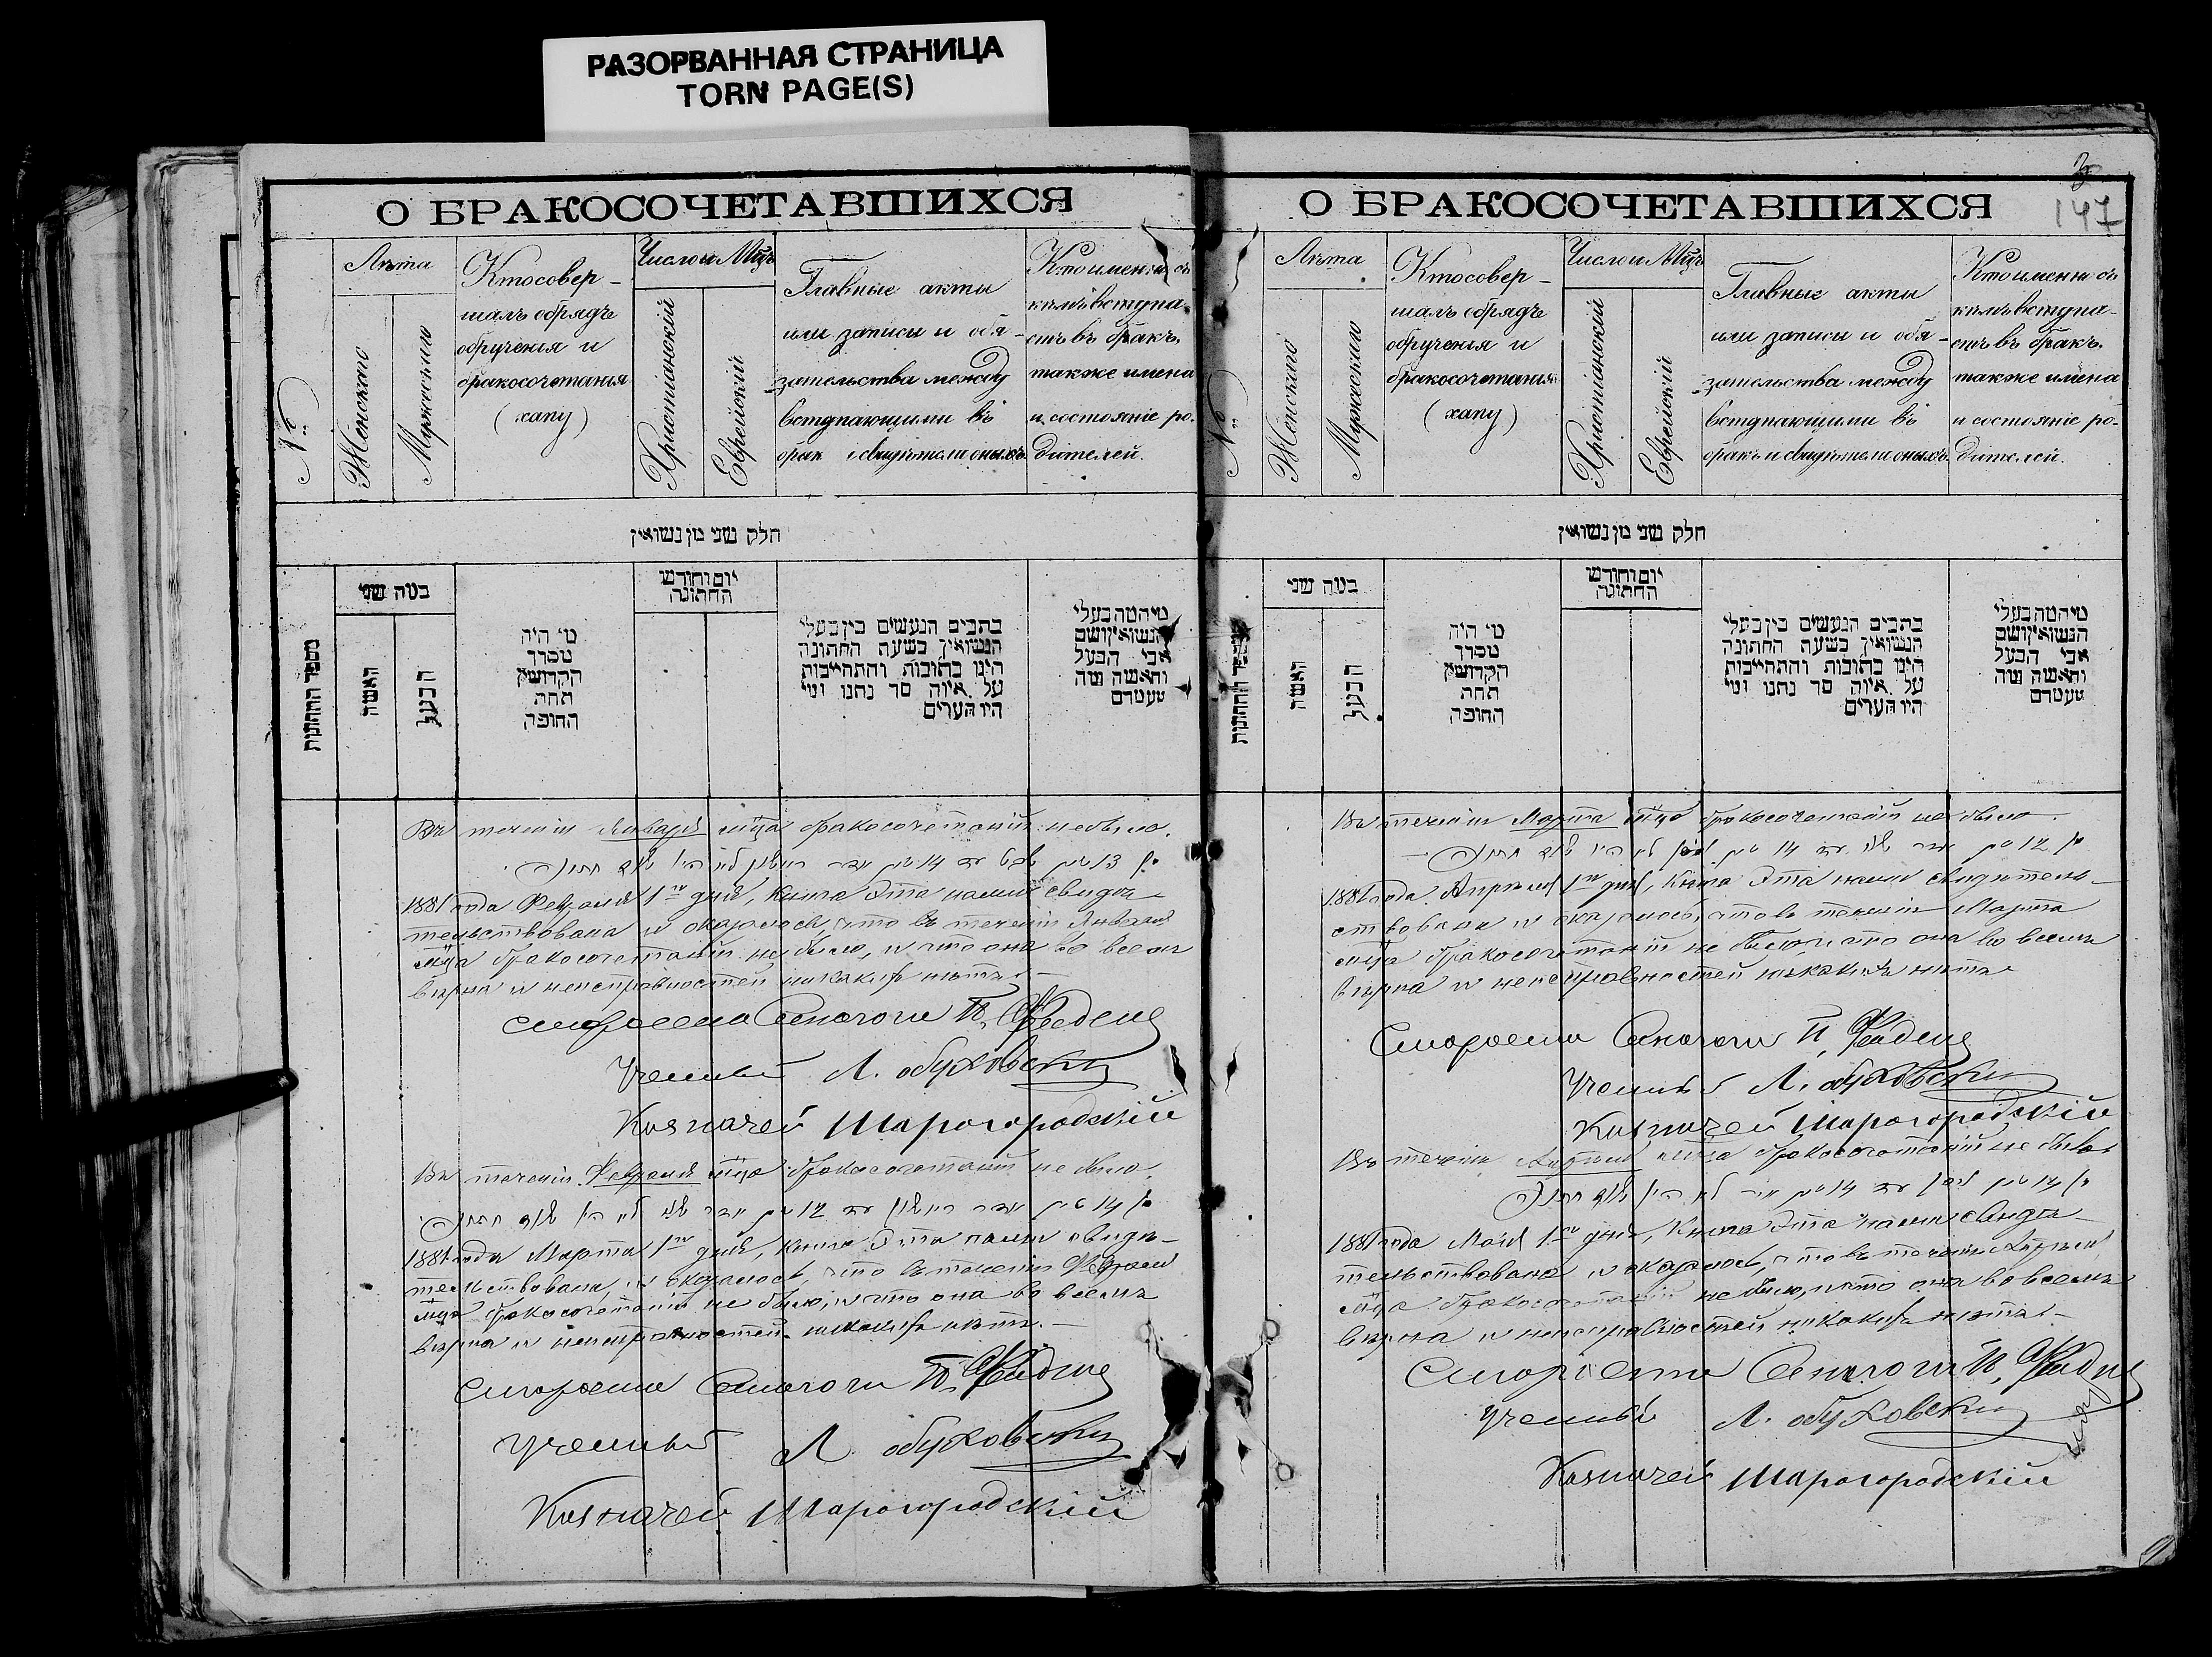 РАЗОРВАННАЯ СТРАНИЦА
TORN PAGE(S)
О БРАКОСОЧЕТАВШИХСЯ
№
Лѣта
Женскаго
Мужескаго
Кто совер-
шалъ обрядъ
обрученія и
бракосочетанія
(хапу)
Число и Мцъ
Христіанскій
Еврейскій
Главные акты
или записи и обя-
зательства между
вступающими въ
брак и свидѣтели оныхъ.
Кто именно съ
кѣмъ вступа-
етъ въ бракъ,
также имена
и состояніе ро-
дителей.
חלק שני מן נשואין
מספר החתונות
במה שני
האשה
הבעל
מי היה
מסדר
הקדושין
תחת
החופה
יום וחודש
החתונה
כתבים הנעשים בין בעלי
הנשואין בשעת החתונה
היינו כתובות והתחייבות
על איזה סך נתנו ומי
היו העדים
מי המה בעלי
הנשואין ושם
אבי הבעל
והאשה ומה
מעמדם
Въ теченіи Января мца бракосочетаній не было.
1881 года Февраля 1го дня, книга эта нами свидѣ-
тельствована и оказалось, что въ теченіи Января
мца бракосочетаній не было, и что она во всемъ
вѣрна и неисправностей никакихъ нѣтъ.—
Староста Синагоги
Ученый Л. Обуховски
Казначей Шарогородскій
Въ теченіи Февраля мца бракосочетаній не было.
1881 года Марта 1го дня, книга эта нами свидѣ-
тельствована, и оказалось, что въ теченіи Февраля
мца бракосочетаній не было, и что она во всемъ
вѣрна и неисправностей никакихъ нѣтъ.—
Староста Синагоги
Ученый Л. Обуховски
Казначей Шарогородскій
3
147
О БРАКОСОЧЕТАВШИХСЯ
№
Лѣта
Женскаго
Мужескаго
Кто совер-
шалъ обрядъ
обрученія и
бракосочетанія
(хапу)
Число и Мцъ
Христіанскій
Еврейскій
Главные акты
или записи и обя-
зательства между
вступающими въ
бракъ и свидѣтели оныхъ.
Кто именно съ
кѣмъ вступа-
етъ въ бракъ.
также имена
и состояніе ро-
дителей.
חלק שני מן נשואין
מספר החתונות
במה שני
האשה
הבעל
מי היה
מסדר
הקדושין
תחת
החופה
יום וחודש
החתונה
כתבים הנעשים בין בעלי
הנשואין בשעת החתונה
היינו כתובות והתחייבות
על איזה סך נתנו ומי
היו העדים
מי המה בעלי
הנשואין ושם
אבי הבעל
והאשה ומה
מעמדם
Въ теченіи Марта мца бракосочетаній не было.
1881 года Апрѣля 1го дня, книга эта нами свидѣтель-
ствована и оказалось, что въ теченіи Марта
мца бракосочетаній не было, и что она во всемъ
вѣрна и неисправностей никакихъ нѣтъ.
Староста Синагоги
Ученый Л. Обуховски
Казначей Шарогородскій
Въ теченіи Апрѣля мца бракосочетаній не было
1881 года Мая 1го дня, книга эта нами свидѣ-
тельствована и оказалось, что въ теченіи Апрѣля
мца бракосочетаній не было, и что она во всемъ
вѣрна и неисправностей никакихъ нѣтъ.—
Староста Синагоги
Ученый Л. Обуховски
Казначей Шарогородскій